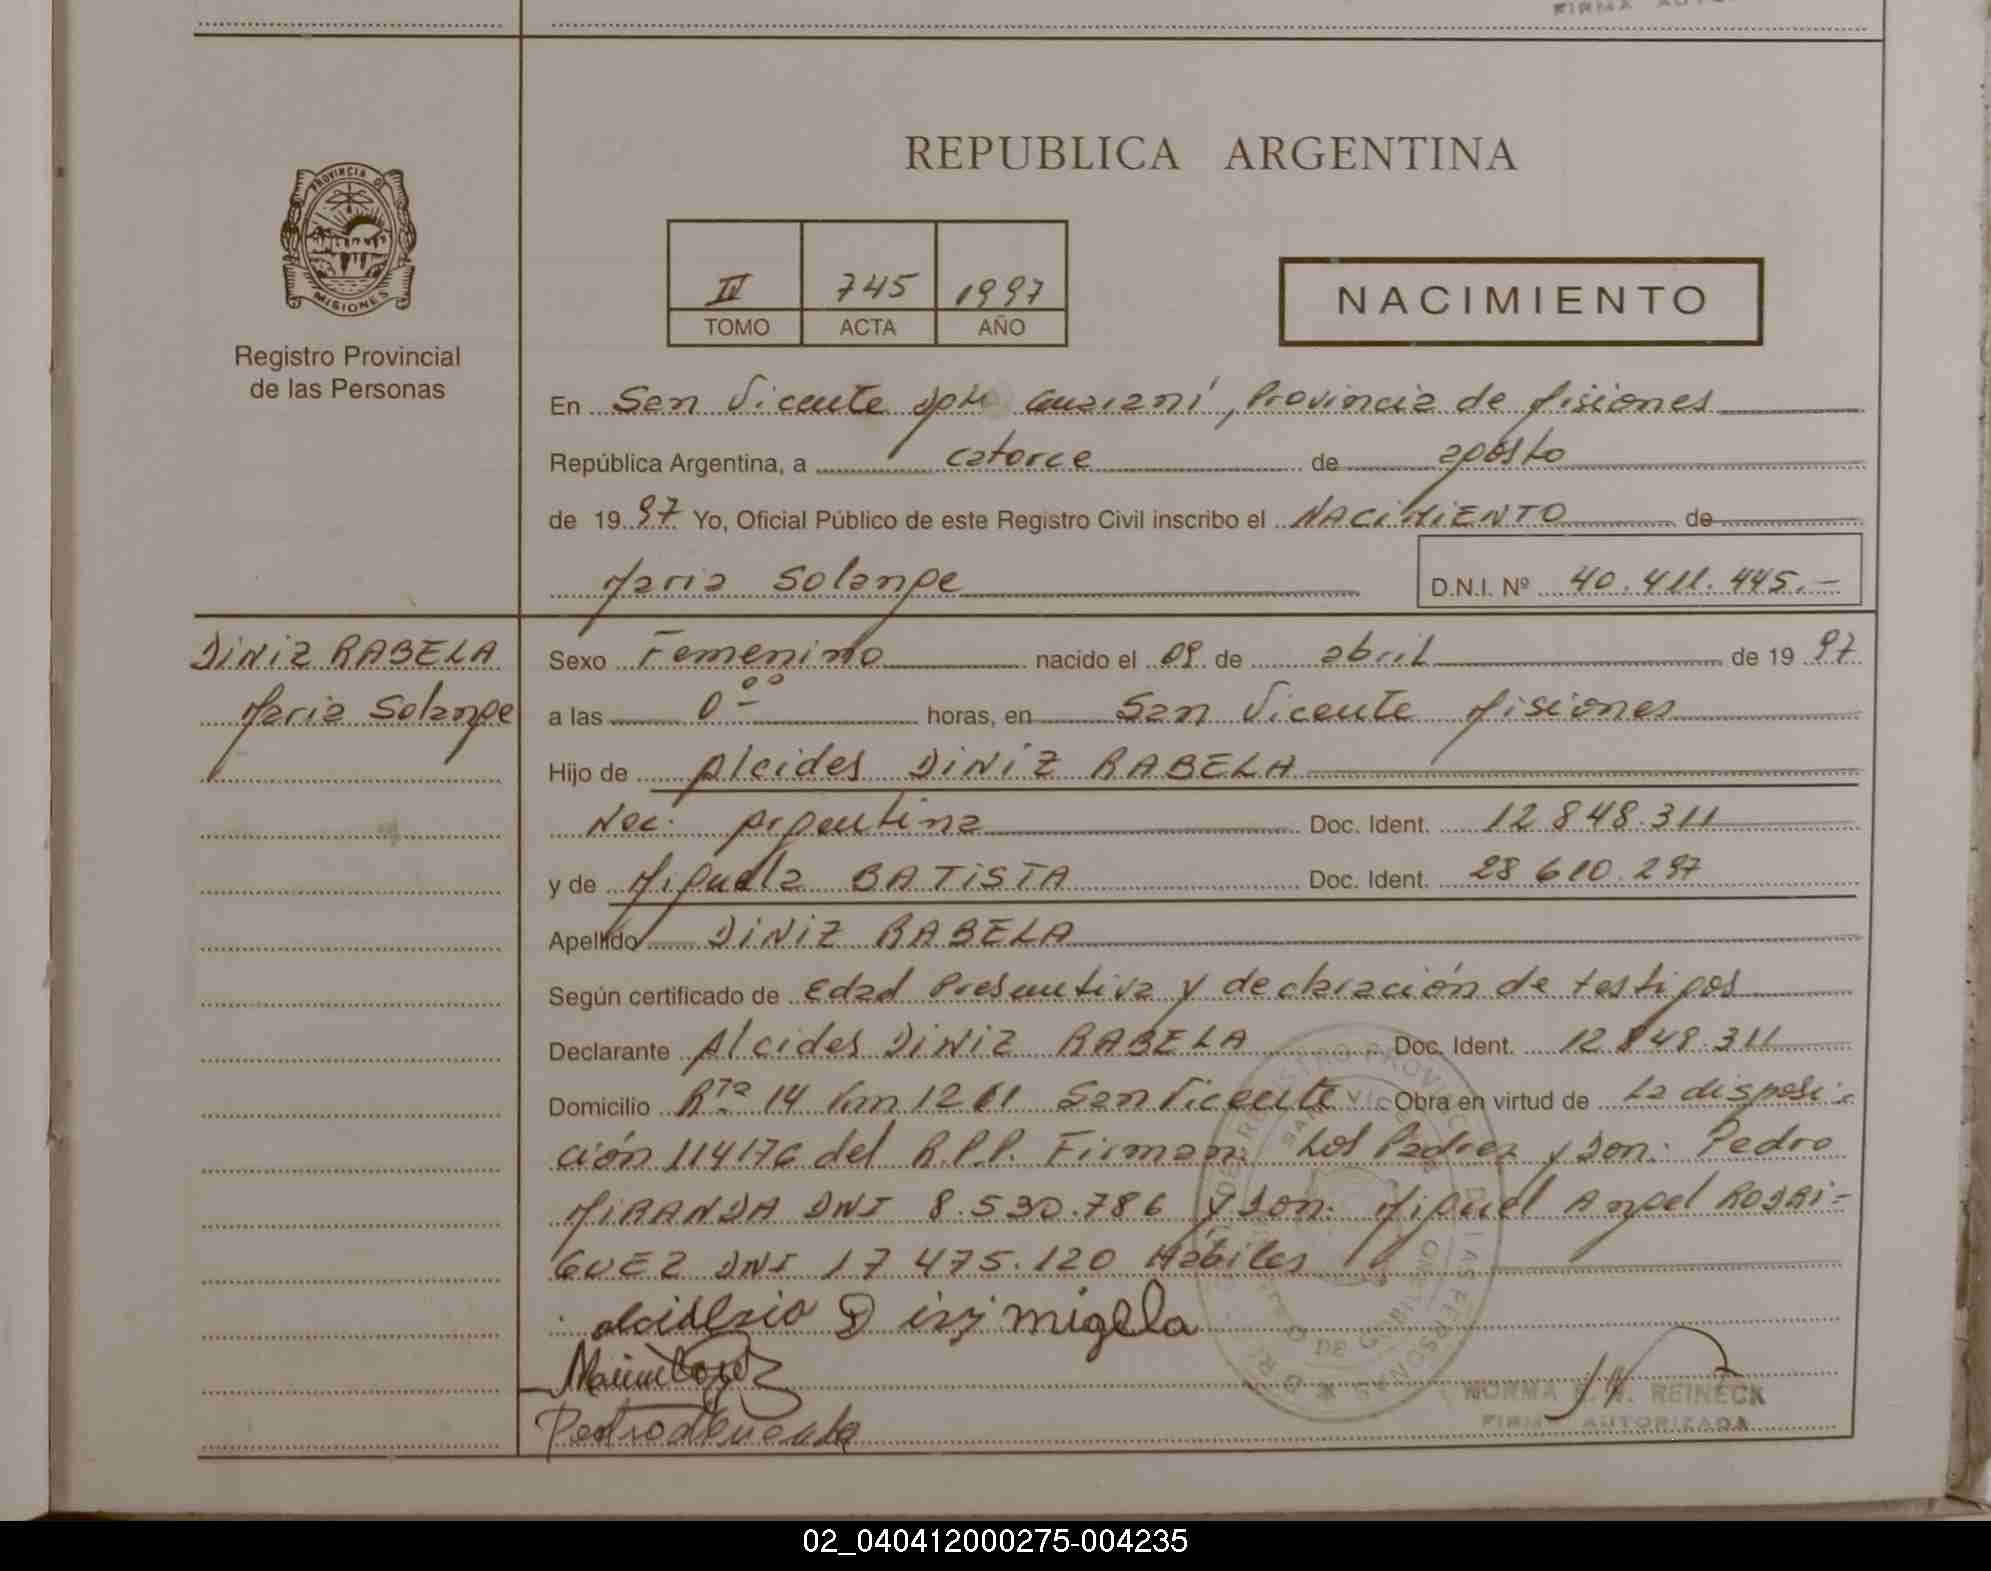 FIRMA AUTO
REPUBLICA ARGENTINA
PROVINCIA DE
MISIONES
Registro Provincial
de las Personas
IV 745 1997
TOMO ACTA AÑO
NACIMIENTO
En San Vicente Dpto Guaraní, Provincia de Misiones
República Argentina, a catorce de agosto
de 1997 Yo, Oficial Público de este Registro Civil inscribo el NACIMIENTO de
Maria Solange D.N.I. Nº 40.411.445.-
DINIZ RABELA
Maria Solange
Sexo Femenino nacido el 09 de abril de 1997
a las 0 ºº horas, en San Vicente Misiones
Hijo de Alcides DINIZ RABELA
Nac. Argentina Doc. Ident. 12 848.311
y de Miguela BATISTA Doc. Ident. 28 610.297
Apellido DINIZ RABELA
Según certificado de Edad Presuntiva y declaración de testigos
Declarante Alcides DINIZ RABELA Doc. Ident. 12 848.311
Domicilio Rta 14 km 1261 San Vicente Obra en virtud de La disposi-
ción 114176 del R.P.P. Firman: Los Padres y Don: Pedro
MIRANDA DNI 8.530.786 y Don: Miguel Angel RODRI-
GUEZ DNI 17 475.120 Hábiles
migela
NORMA REINECK
FIRMA AUTORIZADA
02_040412000275-004235